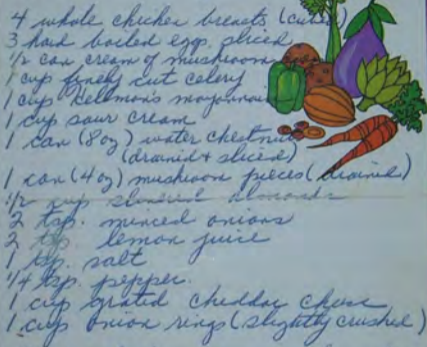 4 whole chicken breasts (cubed)
3 hard boiled eggs, sliced
1/2 can cream of mushroom
1 cup finely cut celery
1 cup Hellman's mayonnaise
1 cup sour cream
1 can (8 oz) water chestnuts
(drained + sliced)
1 can (4 oz) mushroom pieces (drained)
1/2 cup slivered almonds
2 tsp. minced onions
2 tsp lemon juice
1 tsp. salt
1/4 tsp. pepper.
1 cup grated cheddar cheese
1 cup onion rings (slightly crushed)